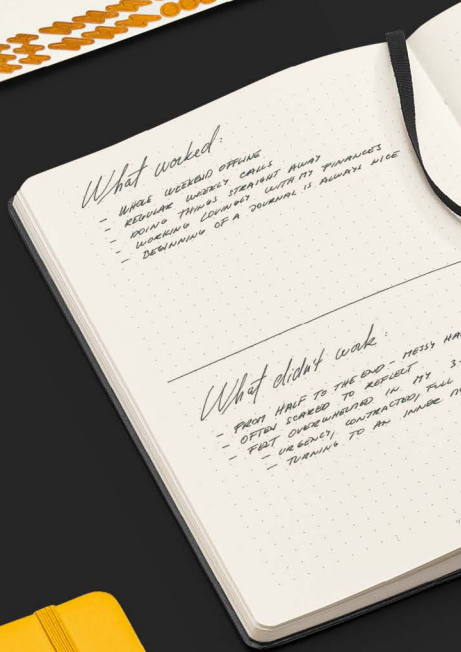 What worked:
- WHOLE WEEKEND OFFLINE
- REGULAR WEEKLY CALLS
- DOING THINGS STRAIGHT AWAY
- WORKING LOVINGLY WITH MY FINANCES
- BEGINNING OF A JOURNAL IS ALWAYS NICE
What didn't work:
- FROM HALF TO THE END - MESSY
- OFTEN SCARED TO REFLECT
- FELT OVERWHELMED IN MY 3-
- URGENCY, CONTRACTED, FULL
- TURNING TO AN INNER